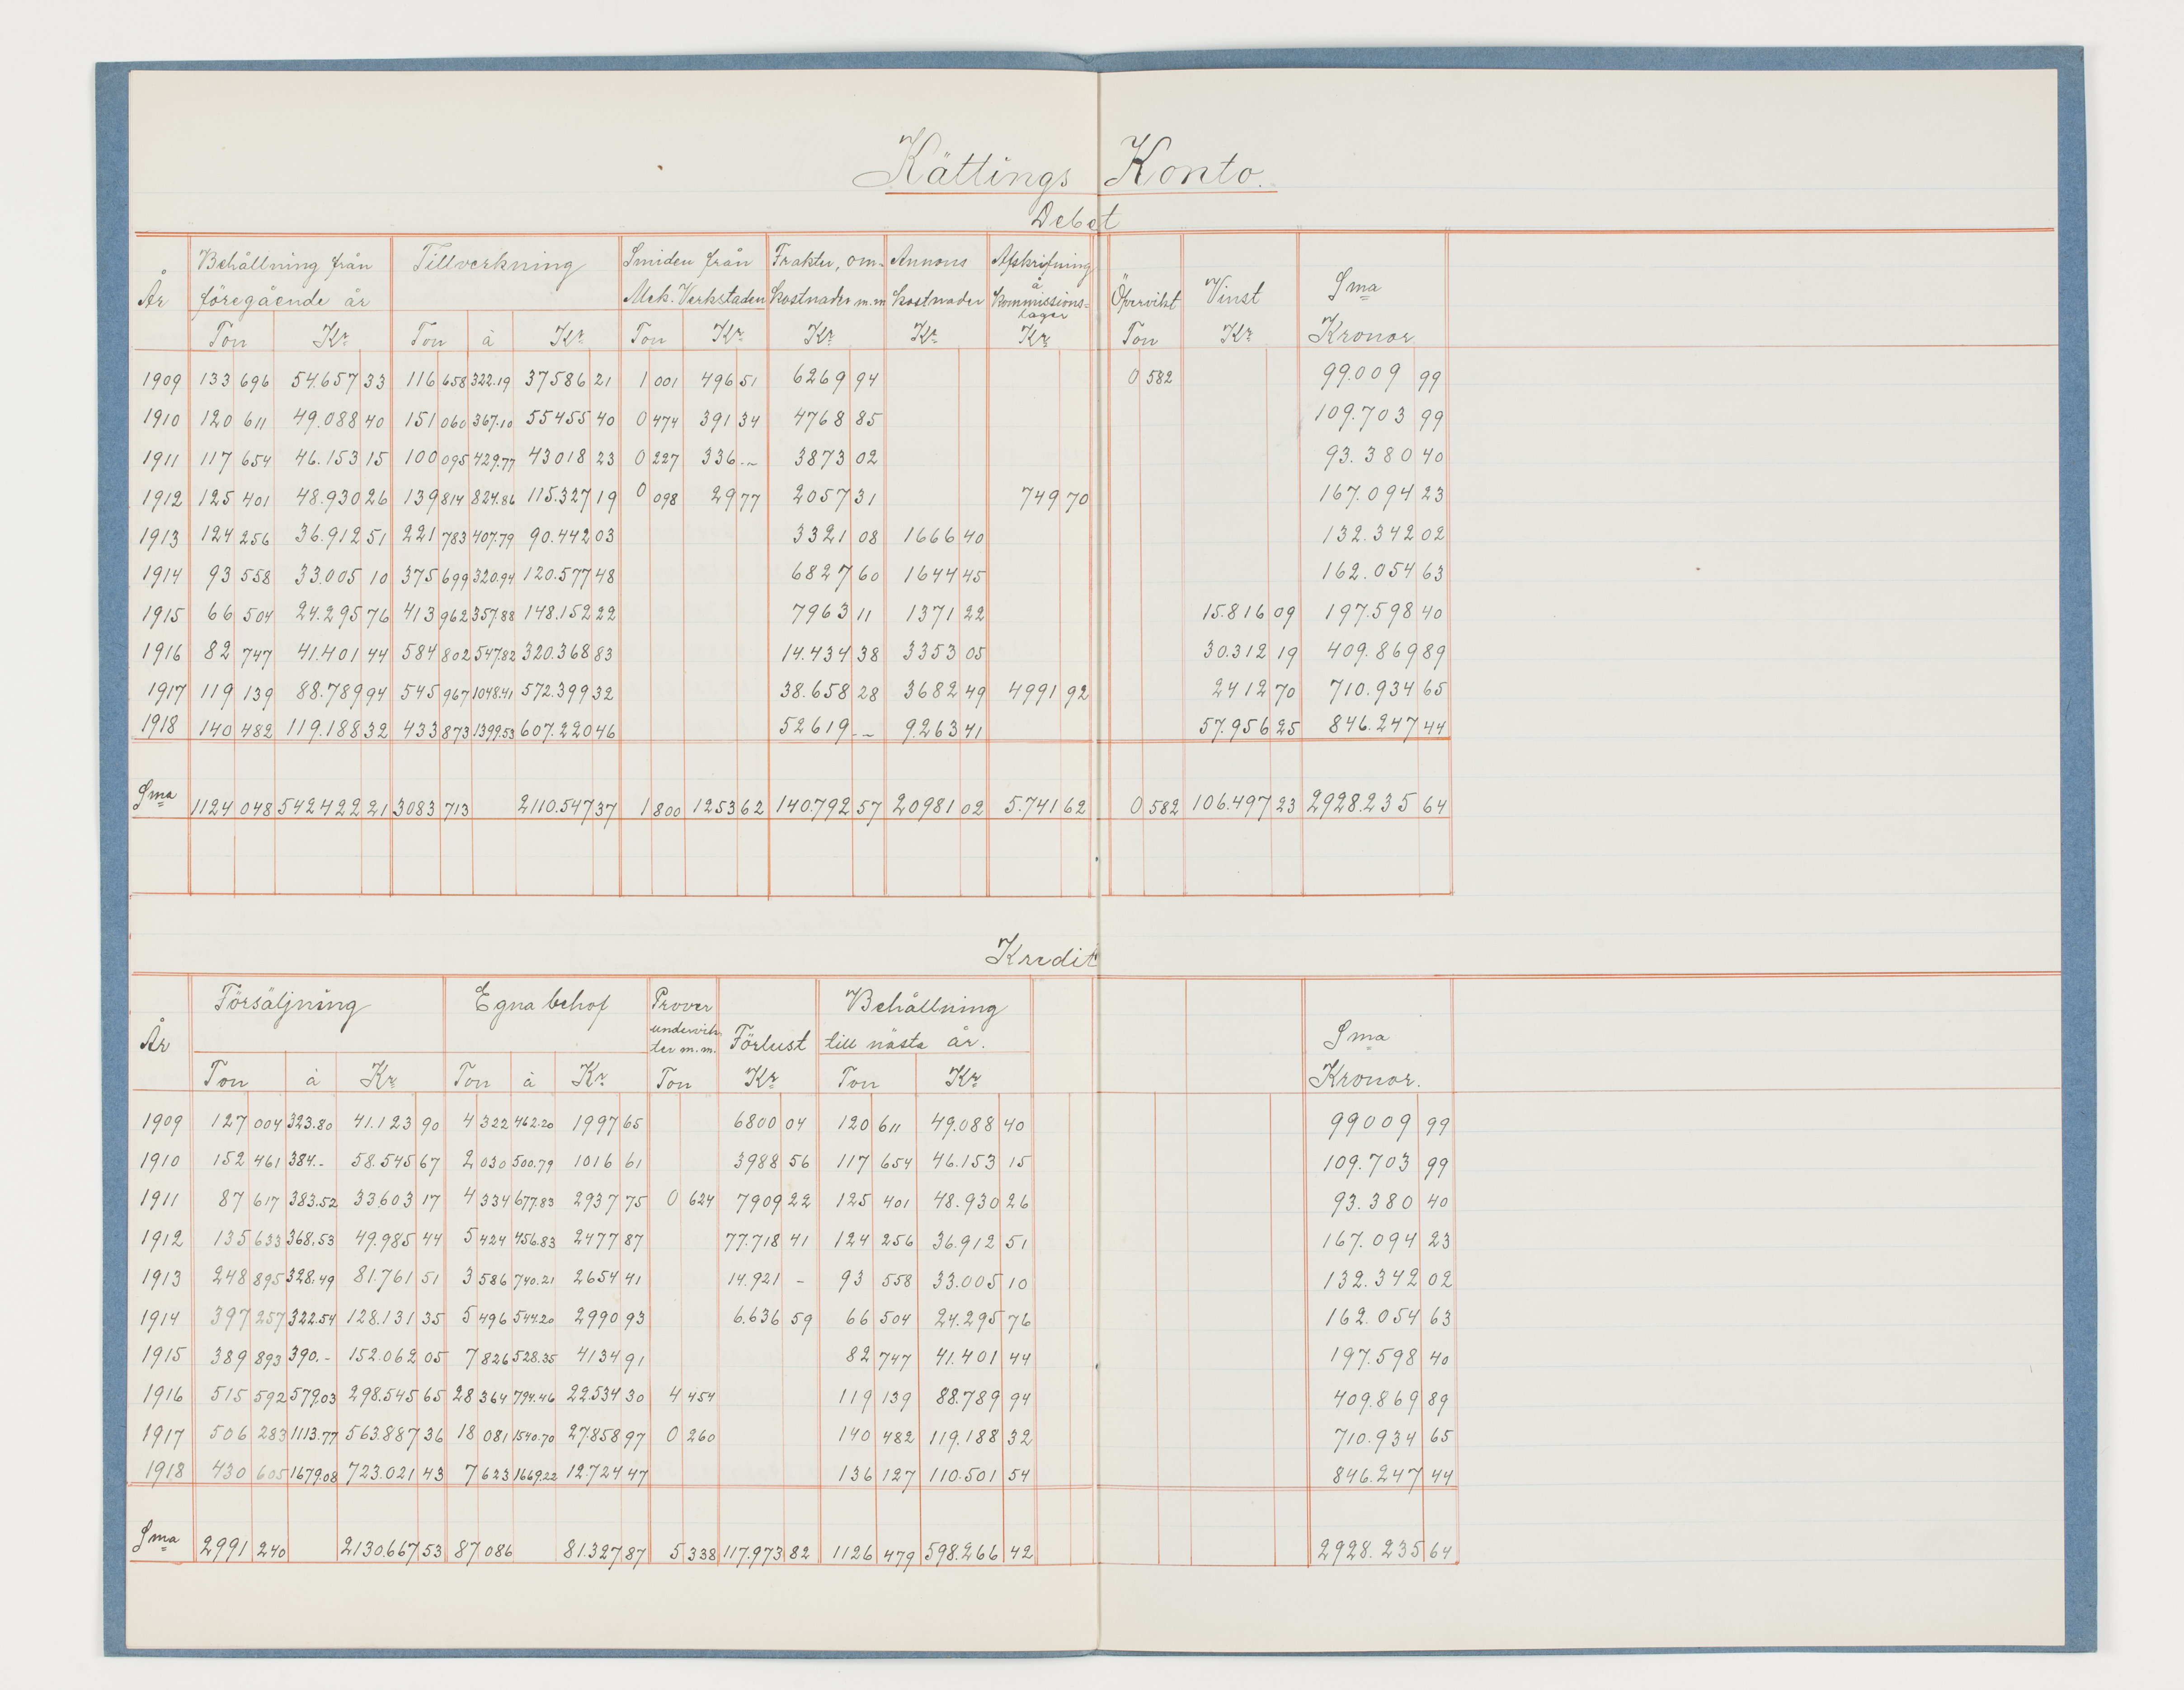 Kättings Konto.
Debet
År Behållning från föregående år Tillverkning Smiden från Mek. Verkstaden Frakter, om-kostnader m.m Annons kostnader Afskrifning å kommissions-lager Öfvervikt Vinst Sma
Ton Kr Ton à Kr Ton Kr Kr Kr Kr Ton Kr Kronor
1909 133 696 54.657 33 116 658 322.19 37586 21 1 001 496 51 6269 94 0 582 99.009 99
1910 120 611 49.088 40 151 060 367.10 55455 40 0 474 391 34 4768 85 109.703 99
1911 117 654 46.153 15 100 095 429.77 43018 23 0 227 336 -- 3873 02 93.380 40
1912 125 401 48.930 26 139 814 824.86 115.327 19 0 098 29 77 2057 31 749 70 167.094 23
1913 124 256 36.912 51 221 783 407.79 90.442 03 3321 08 1666 40 132.342 02
1914 93 558 33.005 10 375 699 320.94 120.577 48 6827 60 1644 45 162.054 63
1915 66 504 24.295 76 413 962 357.88 148.152 22 7963 11 1371 22 15.816 09 197.598 40
1916 82 747 41.401 44 584 802 547.82 320.368 83 14.434 38 3353 05 30.312 19 409.869 89
1917 119 139 88.789 94 545 967 1048.41 572.399 32 38.658 28 3682 49 4991 92 2412 70 710.934 65
1918 140 482 119.188 32 433 873 1399.53 607.220 46 52619 -- 9.263 41 57.956 25 846.247 44
Sma 1124 048 542422 21 3083 713 2110.547 37 1 800 1253 62 140.792 57 20981 02 5.741 62 0 582 106.497 23 2928.235 64
Kredit
År Försäljning Egna behof Prover undervik-ter m.m. Förlust Behållning till nästa år. Sma
Ton à Kr Ton à Kr Ton Kr Ton Kr Kronor.
1909 127 004 323.80 41.123 90 4 322 462.20 1997 65 6800 04 120 611 49.088 40 99009 99
1910 152 461 384.- 58.545 67 2 030 500.79 1016 61 3988 56 117 654 46.153 15 109.703 99
1911 87 617 383.52 33603 17 4 334 677.83 2937 75 0 624 7909 22 125 401 48.930 26 93.380 40
1912 135 633 368.53 49.985 44 5 424 456.83 2477 87 77.718 41 124 256 36.912 51 167.094 23
1913 248 895 328.49 81.761 51 3 586 740.21 2654 41 14.921 - 93 558 33.005 10 132.342 02
1914 397 257 322.54 128.131 35 5 496 544.20 2990 93 6.636 59 66 504 24.295 76 162.054 63
1915 389 893 390.- 152.062 05 7 826 528.35 4134 91 82 747 41.401 44 197.598 40
1916 515 592 579.03 298.545 65 28 364 794.46 22.534 30 4 454 119 139 88.789 94 409.869 89
1917 506 283 1113.77 563.887 36 18 081 1540.70 27.858 97 0 260 140 482 119.188 32 710.934 65
1918 430 605 1679.08 723.021 43 7 623 1669.22 12.724 47 136 127 110.501 54 846.247 44
Sma 2991 240 2130.667 53 87 086 81.327 87 5 338 117.973 82 1126 479 598.266 42 2928.235 64